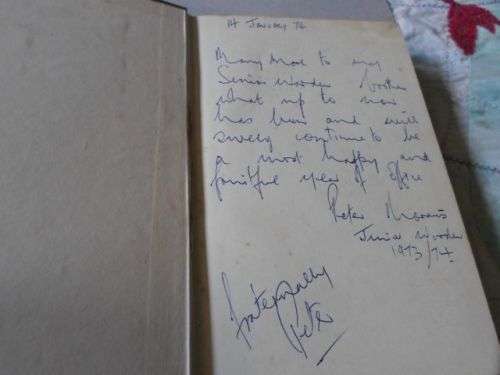 14 January 74
to my
Senior Warden
what up to now
has been and will
surely continue to be
a most happy and
fruitful year of office
Peter
Junior Warden
1973/74.
fraternally
Peter